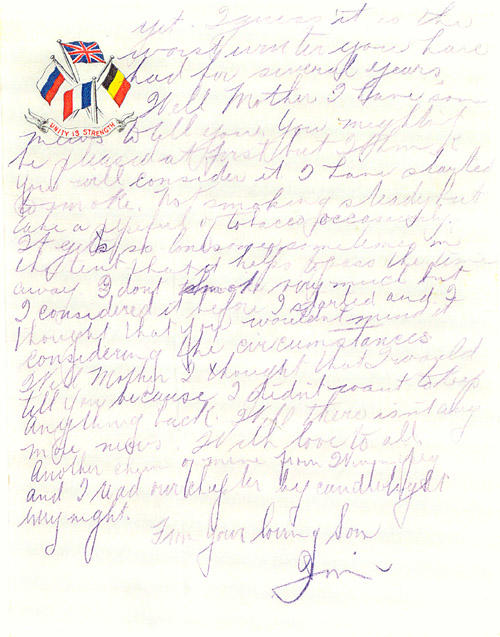 yet. I guess it is the
worst winter you have
had for several years
Well Mother I have some
UNITY IS STRENGTH
news to tell you. You mightnt
be pleased at first but I think
you will consider it I have started
to smoke. Not smoking steady but
take a pipeful of tobacco occasionly.
It gets so lonesome sometimes in
the tent that it helps to pass the time
away I dont smoke very much but
I considered it before I started and I
thought that you wouldnt mind it
considering the circumstances
Well Mother I thought that I would
tell you because I didn't want to keep
anything back. Well there isnt any
more news. With love to all.
Another chum of mine from Winnipeg
and I read our chapter by candlelight
every night.
From your loving Son